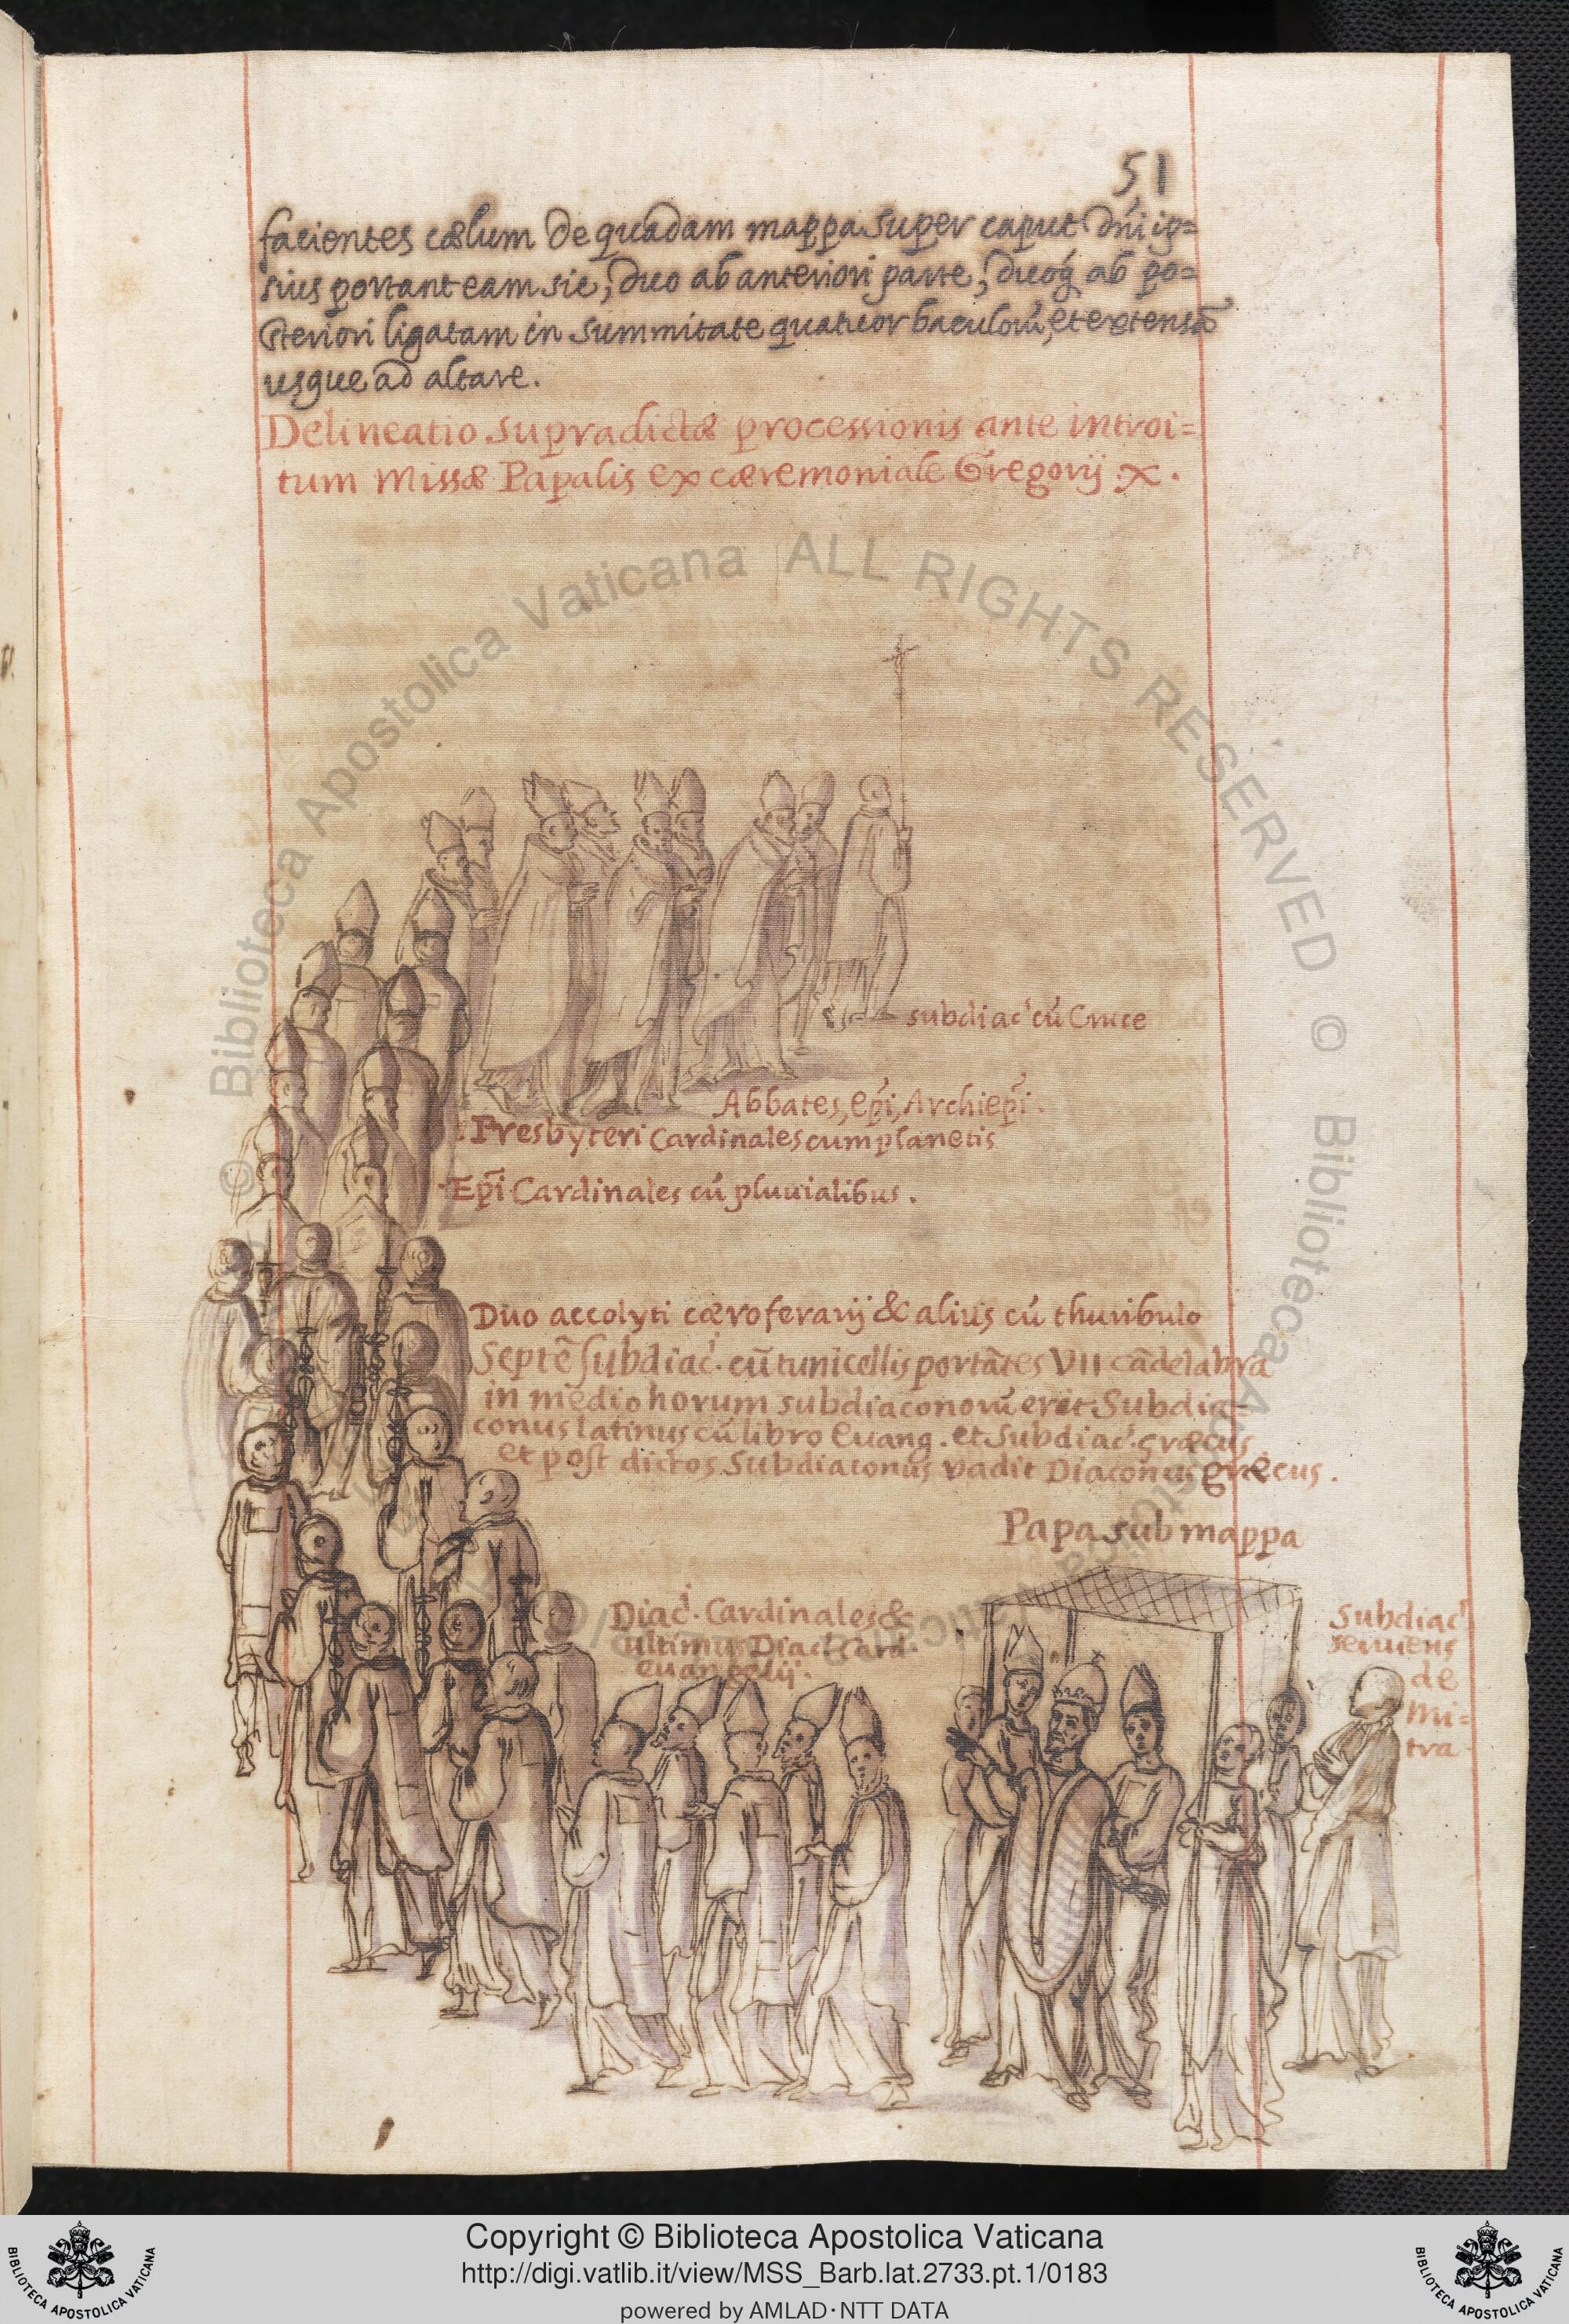 51
facientes cælum de quadam mappa super caput dñi ip=
sius portant eam sic, duo ab anteriori parte, duoq́ ab po=
steriori ligatam in summitate quatuor baculorũ, et extensã
usque ad altare.
Delineatio supradictæ processionis ante introi=
tum Missæ Papalis ex cæremoniale Gregorij .X.
subdiac' cú Cruce
Abbates, epĩ, Archiepĩ.
Presbyteri Cardinales cum planetis
Epĩ Cardinales cú pluvialibus.
Duo accolyti cæroferarij & alius cú thuribulo
Septẽ subdiac̓. cũ tunicellis portãtes VII cãdelabra
in medio horum subdiaconorũ erit Subdia=
conus latinus cũ libro Euang. et Subdiac̓. græcus.
et post dictos Subdiaconus vadit Diaconus græcus.
Papa sub mappa
Diac̓. Cardinales &
ultimus Diac̓ Card.
euangelij.
Subdiac̓
seruens
de
mi=
tra
© Biblioteca Apostolica Vaticana ALL RIGHTS RESERVED © Biblioteca Apostolica Vaticana
Copyright © Biblioteca Apostolica Vaticana
http://digi.vatlib.it/view/MSS_Barb.lat.2733.pt.1/0183
powered by AMLAD·NTT DATA
BIBLIOTECA APOSTOLICA VATICANA
BIBLIOTECA APOSTOLICA VATICANA